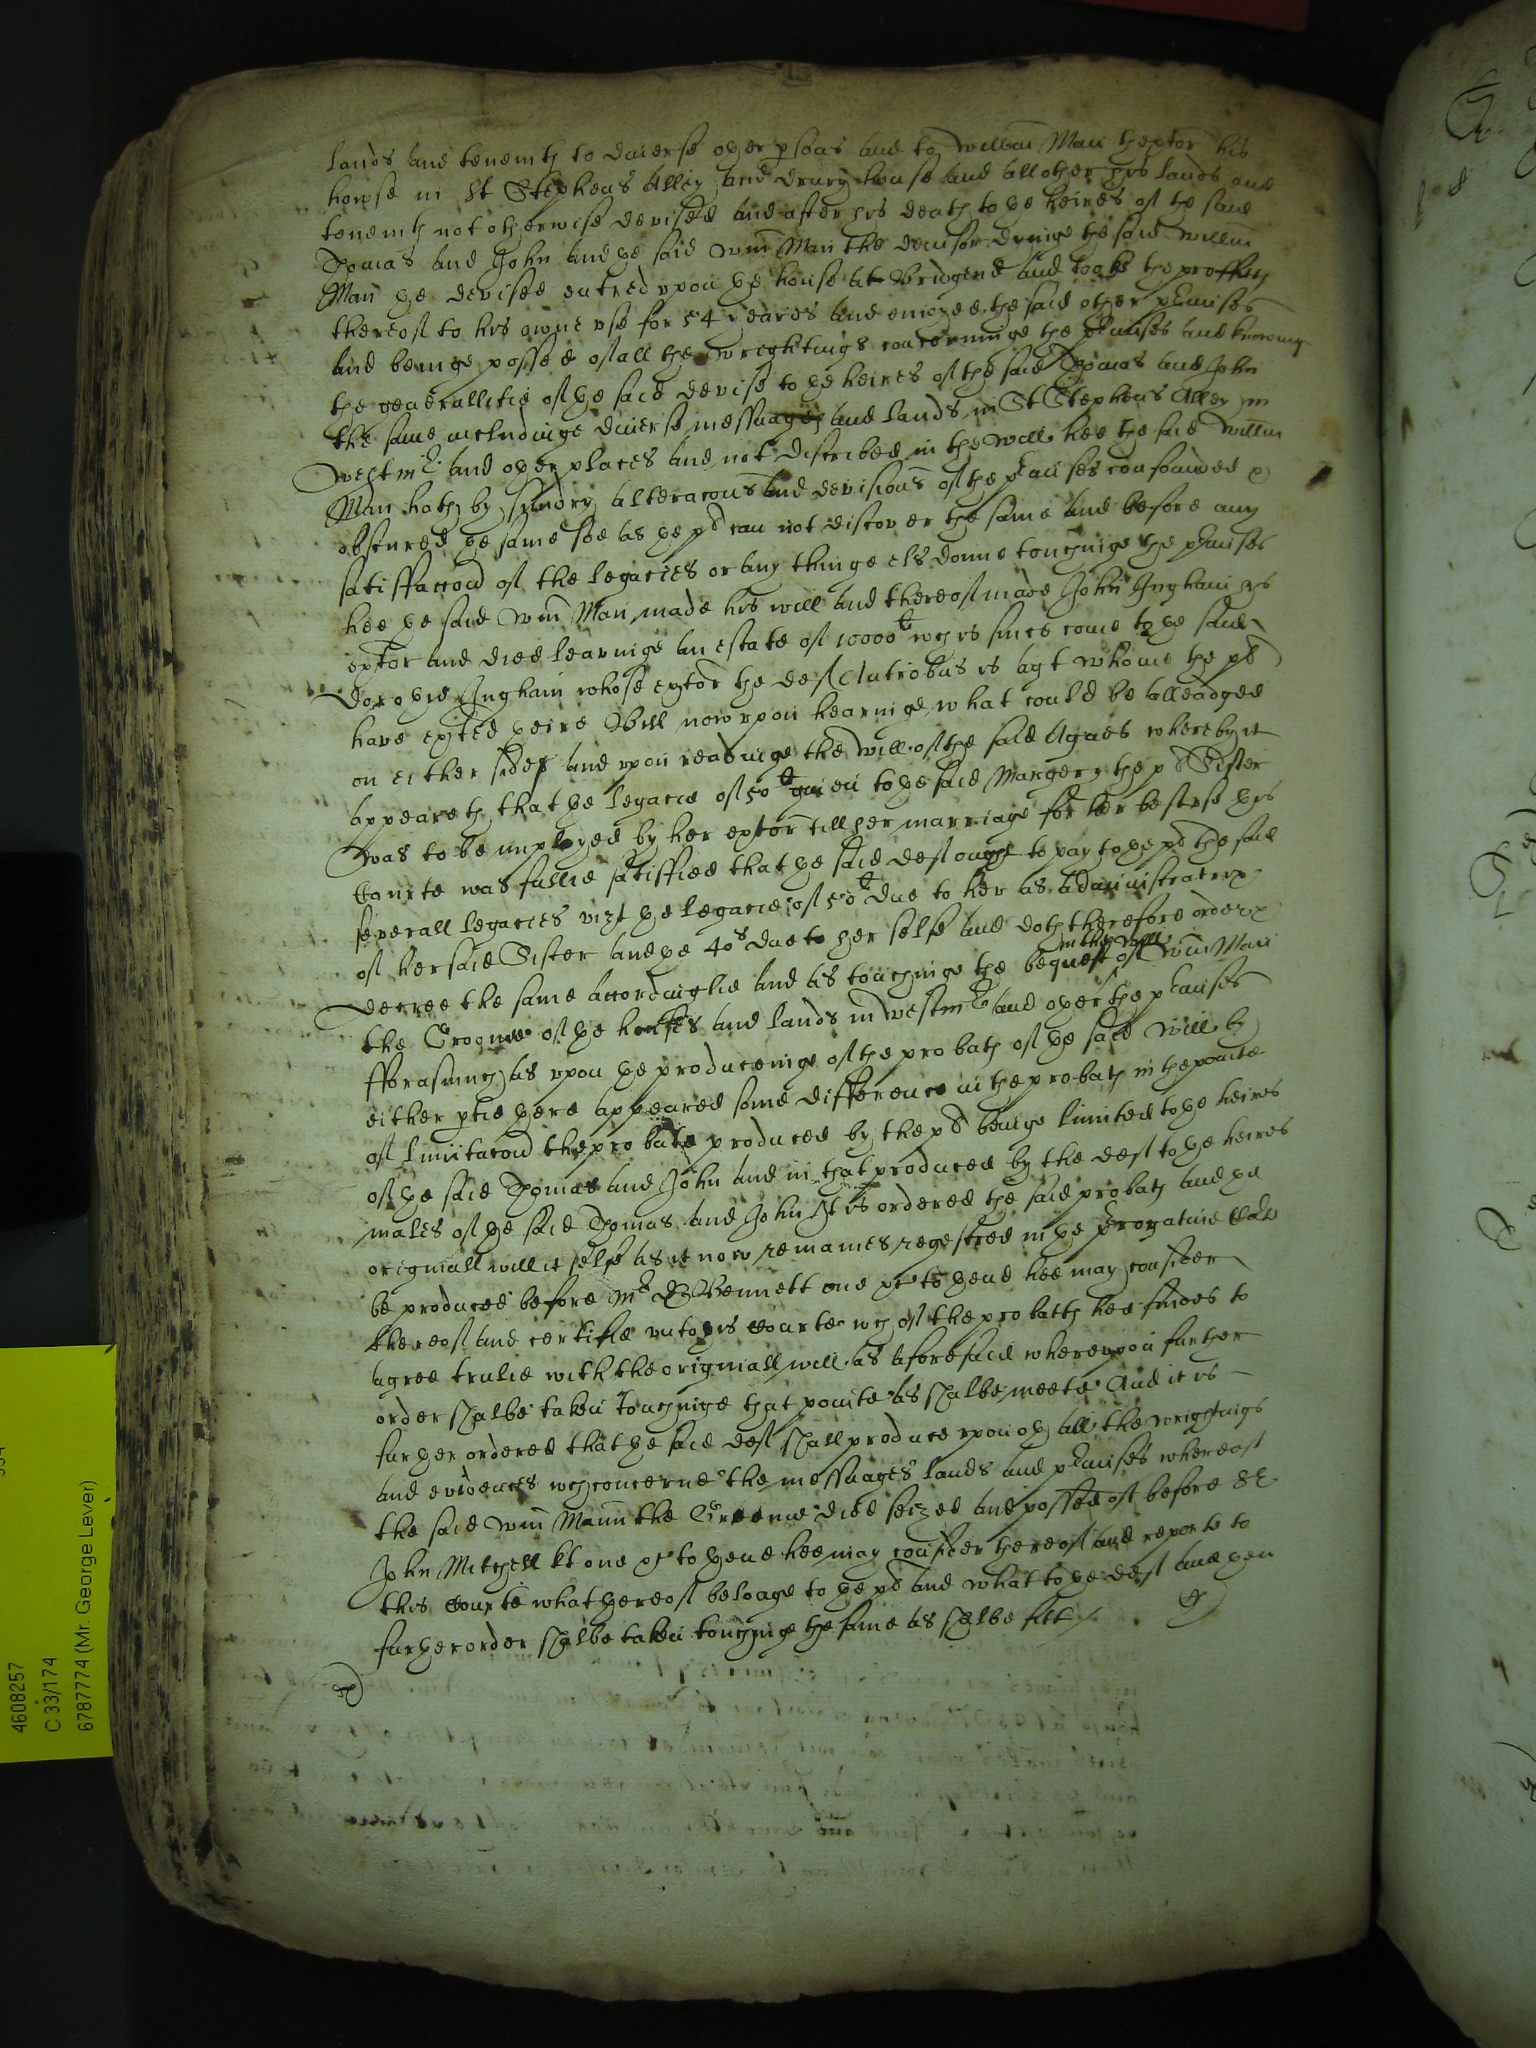 lands and tenemts to diverse other psons and to Willm Man thexptor his
howse in St Stephens Alley and Drury house and all other his lands and
tenemts not otherwise devised and after his death to the heires of the said
Thomas and John and the said Wm Man the devisor dyinge the said Willm
Man the devisee entred upon the house at Bridgend and tooke the proffitts
thereof to his owne use for 54 yeares and enioyed the said other pmises
and beinge possed of all the wrightings concerninge the pmises and knowing
the generallitie of the said devise to the heires of the said Thomas and John
the same includinge diverse messuages and lands in St Stephens Alley in
Westmr and other places and not discribed in the will hee the said Willm
Man hath by sundry alteracons and devisions of the pmises confounded &
obscured the same soe as the pl can not discover the same and before any
satisfaccon of the legacies or any thinge els donne touchinge the pmises
hee the said Wm Man made his will and thereof made John Ingham his
exptor and died leavinge an estate of 10000li wch is since come to the said
Dorothie Ingham whose exptor the deft Antrobus is agt whome the pl
have exhited theire Bill now upon hearinge what could be alleadged
on either side and upon readinge the will of the said Agnes whereby it
appeareth that the legacie of 50li given to the said Margery the pl Sister
was to be imployed by her exptor till her marriage for her best use this
Courte was fullie satisfied that the said deft ought to pay to the pl the said
severall legacies vizt the legacie of 50li due to her as administratrix
of her said Sister and the 40s due to her selfe and doth therefore order &
decree the same accordinglie and as touchinge the bequest in the will of Wm Man
the Groome of the howses and lands in Westmr and other the pmises
fforasmuch as upon the producinge of the probath of the said Will by
either ptie there appeared some difference in the probath in the pointe
of limitacon the probate produced by the pl beinge limited to the heires
of the said Thomas and John and in that produced by the deft to the heires
males of the said Thomas and John It is ordered the said probath and the
originall will it selfe as it now remaines regestred in the Prerogative
be produced before Mr D Bennett one &c to thend hee may consider
thereof and certifie unto this Courte wch of the probaths hee findes to
agree trulie with the originall will as aforesaid whereupon further
order shalbe taken touchinge that pointe as shalbe meete And it is
further ordered that the said deft shall produce upon oth all the wrightings
and evidences wch concerne the messuages lands and pmises whereof
the said Wm Mann the Groome died seized and possed of before Sr
John Mitchell kt one &c to thend hee may consider thereof and reporte to
this Courte what thereof belonge to the pl and what to the deft and then
further order shalbe taken touchinge the same as shalbe fitt
4608257
C 33/174
6787774 (Mr. George Lever)